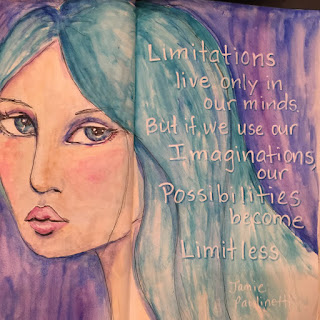 Limitations
live only in
our minds.
But if we use our
Imaginations,
our
Possibilities
become
Limitless
Jamie
Paolinetti